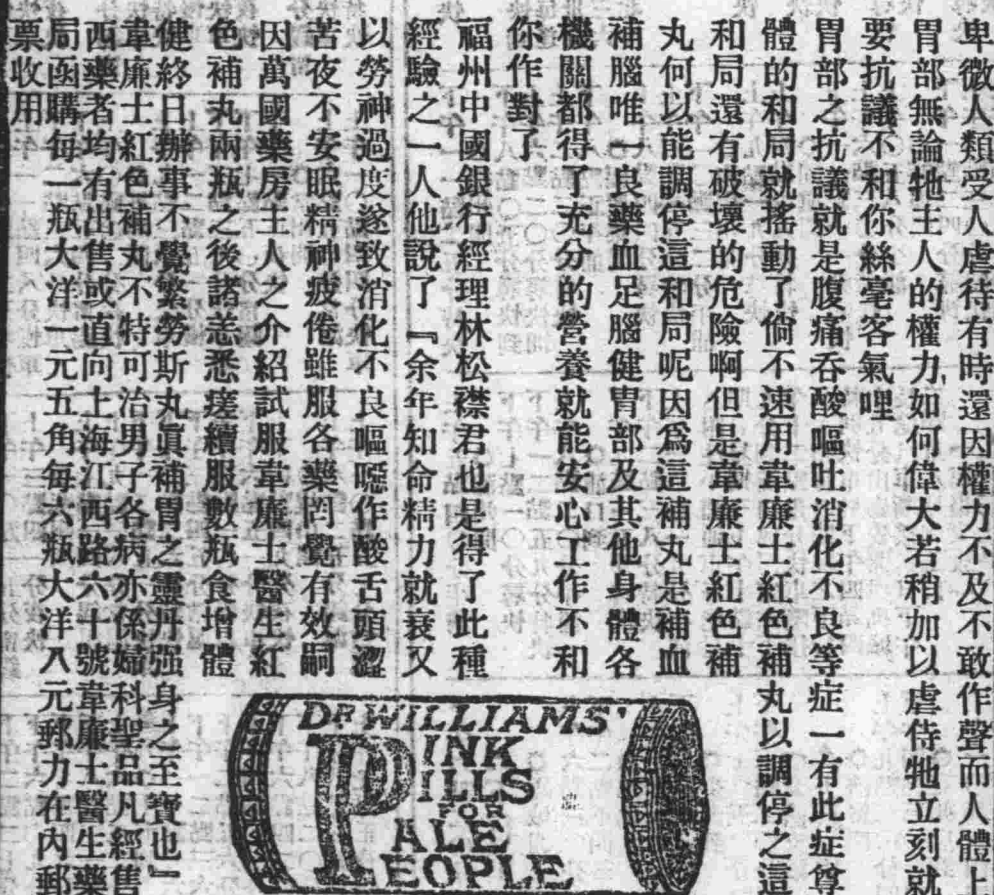 卑微人類受人虐待有時還因權力不及不敢作聲而人體上
胃部無論牠主人的權力如何偉大若稍加以虐待牠立刻就
要抗議不和你絲毫客氣哩
胃部之抗議就是腹痛吞酸嘔吐消化不良等症一有此症尊
體的和局就搖動了倘不速用韋廉士紅色補丸以調停之這
和局還有破壞的危險啊但是韋廉士紅色補
丸何以能調停這和局呢因爲這補丸是補血
補腦唯一良藥血足腦健胃部及其他身體各
機關都得了充分的營養就能安心工作不和
你作對了
福州中國銀行經理林松襟君也是得了此種
經驗之一人他說了『余年知命精力就衰又
以勞神過度遂致消化不良嘔噁作酸舌頭澀
苦夜不安眠精神疲倦雖服各藥罔覺有效嗣
因萬國藥房主人之介紹試服韋廉士醫生紅
色補丸兩瓶之後諸恙悉瘥續服數瓶食增體
健終日辦事不覺繁勞斯丸眞補胃之靈丹强身之至寶也』
韋廉士紅色補丸不特可治男子各病亦係婦科聖品凡經售
西藥者均有出售或直向上海江西路六十號韋廉士醫生藥
局函購每一瓶大洋一元五角每六瓶大洋八元郵力在內郵
票收用
DR WILLIAMS'
PINK
PILLS
FOR
PALE
PEOPLE